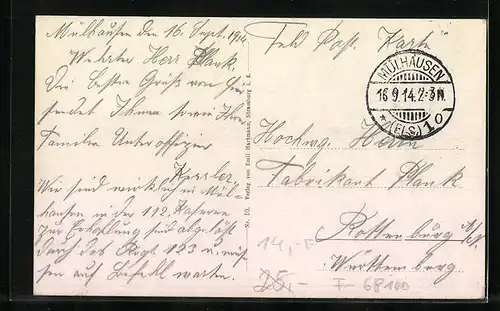 Mülhausen den 16 Sept. 1914
Wehrter Herr Plank
Die besten Grüße von hier
sendet Ihnen sowie Ihrer
Familie Unteroffizier
Kessler
Wir sind wirklich in Mül-
hausen in der 112. Kaserne
zur Erholung sind abgelößt
durch das Regt. 123 u. müs-
sen auf Befehl warten.
Nr. 10. Verlag von Emil Hartmann, Strassburg i. E.
Feld Post. Karte
MÜLHAUSEN
16.9.14.2-3N.
*(ELS.) 1 o
Hochwg. Herrn
Fabrikant Plank
Rottenburg a/N.
Württemberg
14,-
25,-
F-68100